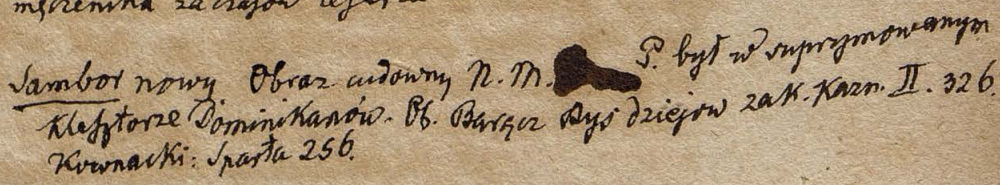 męczennika za czasów
Sambor nowy Obraz cudowny N. M. P. był w suprymowanym
Klasztorze Dominikanów. Ob. Barącz Rys dziejow zak. Kazn. II. 326.
Kownacki: Sparta 256.